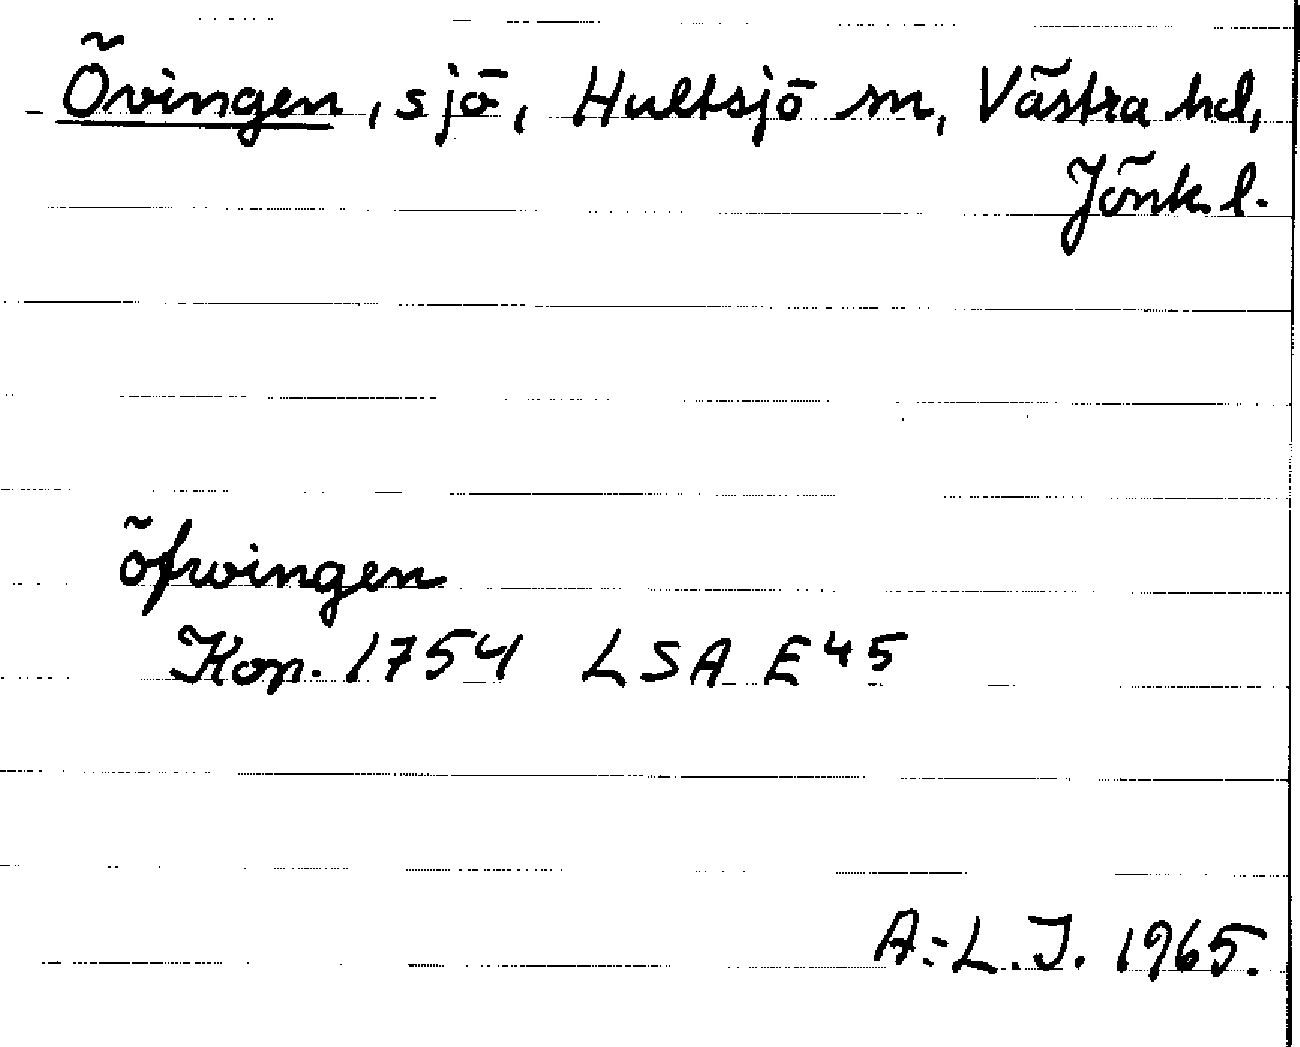 Övingen, sjö, Hultsjö sn, Västra hd,
Jönk. l.
öfwingen
Kop. 1754 LSA E45
A:L.I. 1965.